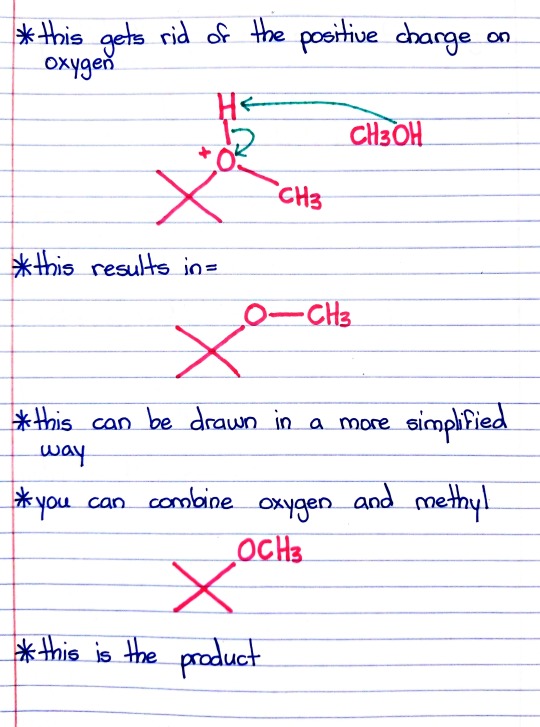 *this gets rid of the positive charge on
oxygen
H
CH3OH
+ O
CH3
*this results in=
O—CH3
*this can be drawn in a more simplified
way
*you can combine oxygen and methyl
OCH3
*this is the product